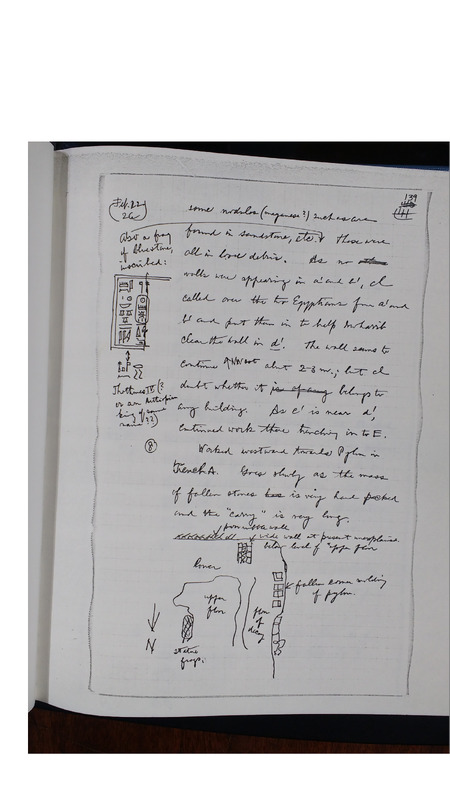 139
Feb. 22
26
some nodules (manganese?) such as are
found in sandstone, etc. Those were
all in loose debris. As no
walls were appearing in a' and b', I
called over the two Egyptians from a' and
b' and put them in to help
clear the wall in d'. The wall seems to
continue about 2-3 m.; but I
doubt whether it belongs to
any building. As c' is near d',
continued work there trenching in to E.
Also a frag
of bluestone,
inscribed:
Thothmes IV (?
or an Ethiopian
king of same
name??)
(8)
Worked westward towards Pylon in
trench A. Goes slowly as the mass
of fallen stones is very hard packed
and the "carry" is very long.
wall at present unexplained.
below level of upper floor
lower
upper
floor
floor
of
fallen corner molding
of pylon.
N
statue
frags.